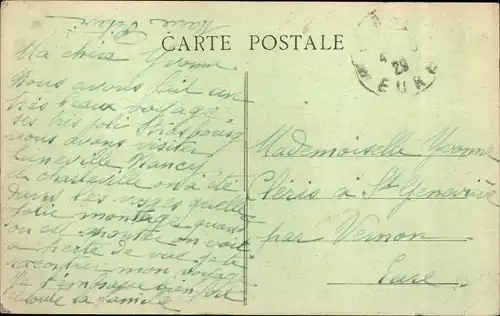 CARTE POSTALE
29
EURE
Ma chère Yvonne
Nous avons fait un
très beaux voyage
ses très joli Strasbourg
vous avons visiter
Luneville Nancy
et charleville on a été
dans les voges quelle
jolie montages quand
on est monter on voit
a perte de vue je te
racontier mon voyage
Je t'embrasse bien fort
et toute la famille
Marie
Mademoiselle Yvonne
Cléris à St Geneviève
par Vernon
Eure